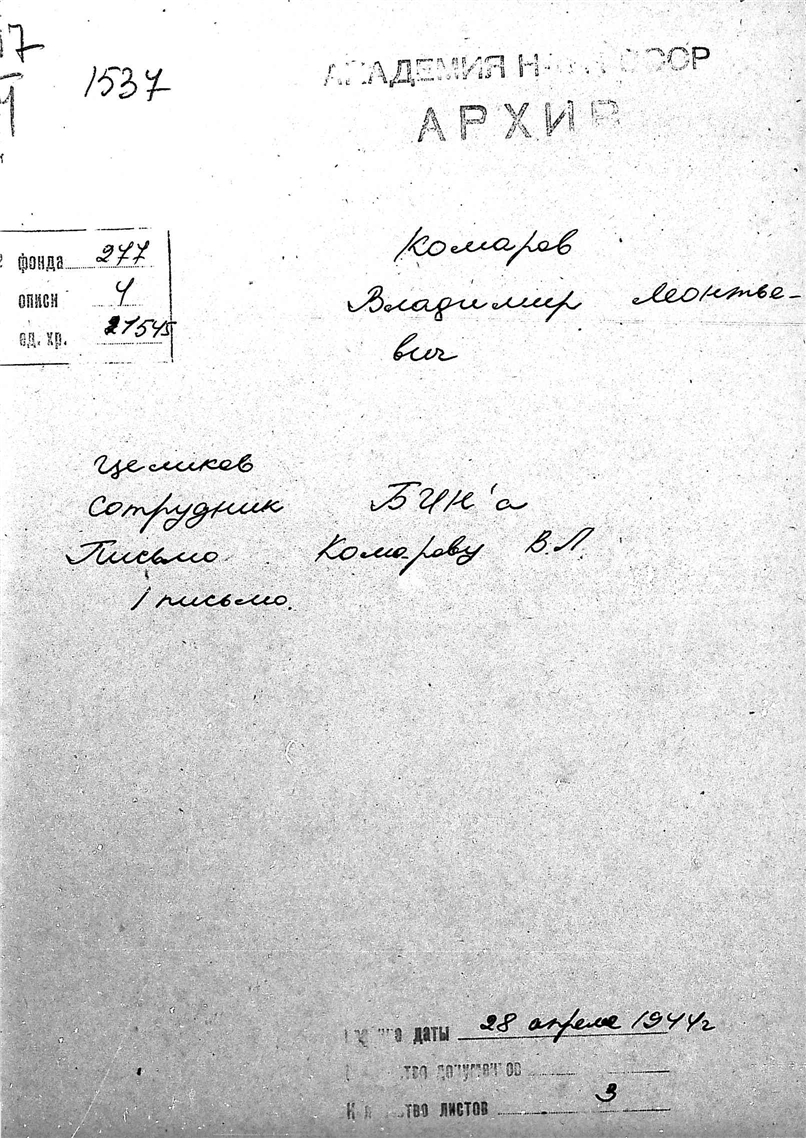 17
1537
АКАДЕМИЯ НАУК СССР
АРХИВ
фонда 277
описи 4
ед. хр. 1545
Комаров
Владимир Леонтье-
вич
Целиков
Сотрудник БИН'а
Письмо Комарову В.Л.
1 письмо.
даты 28 апреля 1944г
документов
листов 3